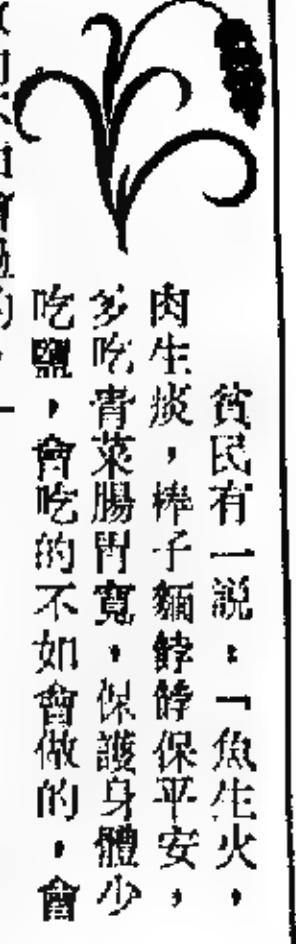 貧民有一説：「魚生火，
肉生痰，棒子麵餑餑保平安，
多吃青菜腸胃寬，保護身體少
吃鹽，會吃的不如會做的，會